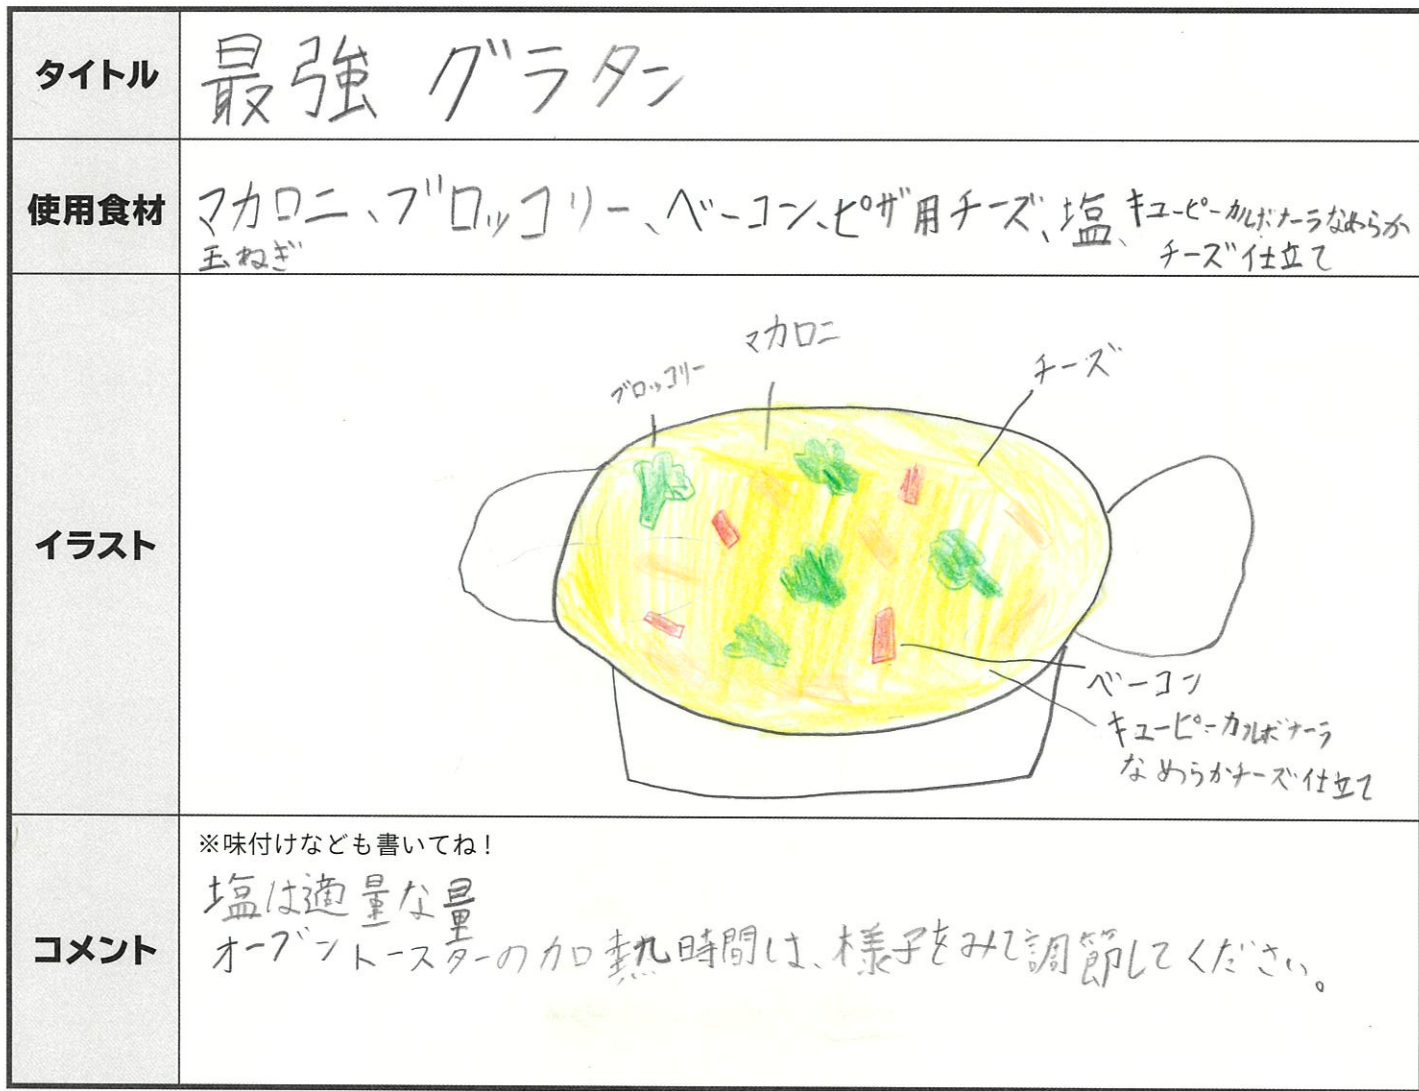 タイトル
最強 グラタン
使用食材
マカロニ、ブロッコリー、ベーコン、ピザ用チーズ、塩、キューピーカルボナーラなめらか
チーズ仕立て
玉ねぎ
イラスト
マカロニ
ブロッコリー
チーズ
ベーコン
キューピーカルボナーラ
なめらかチーズ仕立て
コメント
※味付けなども書いてね！
塩は適量な量
オーブントースターの加熱時間は、様子をみて調節してください。